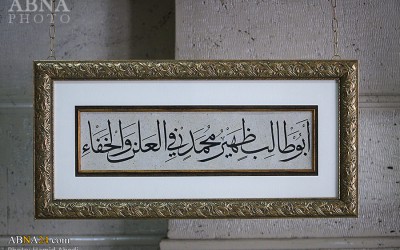 ABNA
PHOTO
أبو طالب ظهير محمد في العلن والخفاء
ABNA24.com